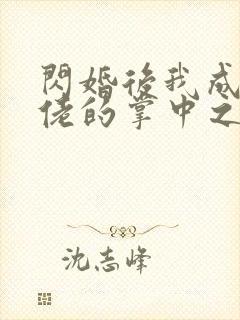 閃婚後我成
佬的掌中之
沈志峰